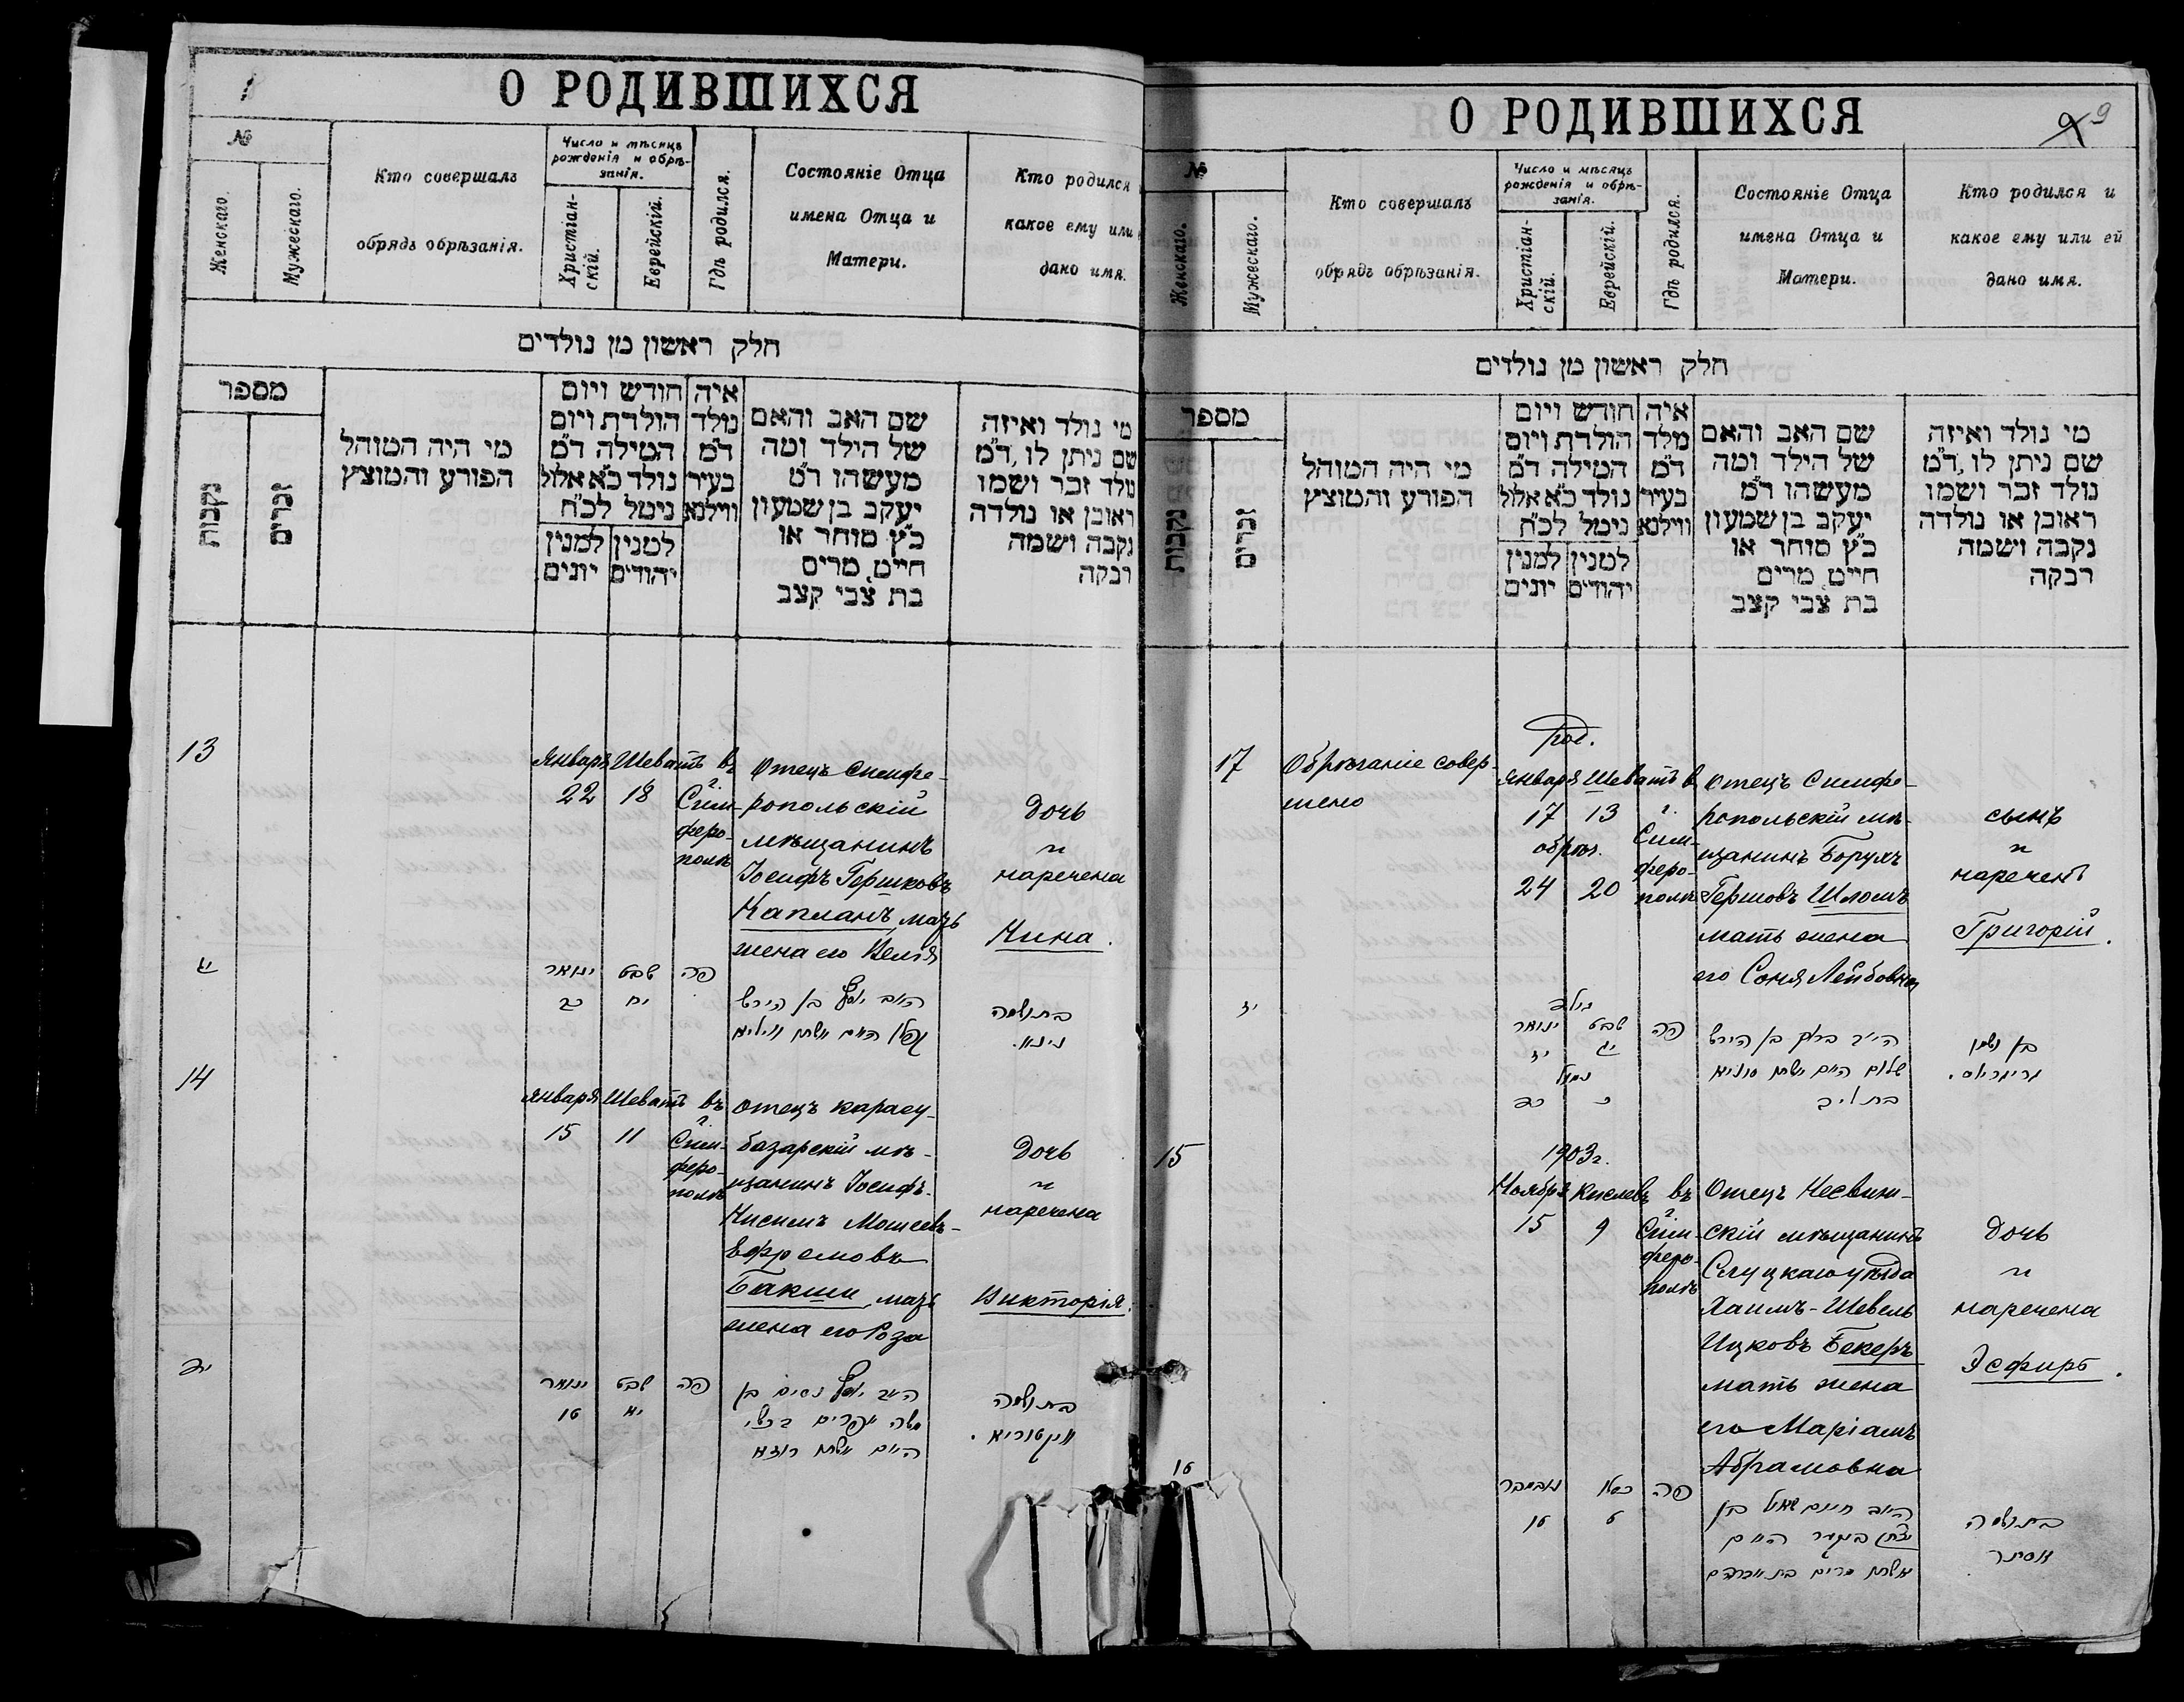 О РОДИВШИХСЯ
№
Женскаго.
Мужескаго.
Кто совершалъ
обрядъ обрѣзанія.
Число и мѣсяцъ
рожденія и обрѣ-
занія.
Христіан-
скій.
Еврейскій.
Гдѣ родился.
Состояніе Отца
имена Отца и
Матери.
Кто родился
какое ему или
дано имя.
חלק ראשון מן נולדים
מספר
נקבות
זכרים
מי היה המוהל
הפורע והמוצץ
חודש ויום
הולדת ויום
המילה ד"מ
נולד כ"א אלול
ניטל לכ"ח
למנין
יהודים
למנין
יונים
איה
נולד
ד"מ
בעיר
ווילנא
שם האב והאם
של הילד ומה
מעשהו ד"מ
יעקב בן שמעון
כ"ץ סוחר או
חייט, מרים
בת צבי קצב
מי נולד ואיזה
שם ניתן לו, ד"מ
נולד זכר ושמו
ראובן או נולדה
נקבה ושמה
רבקה
13
Января Шеватъ въ
22 18
г.
Сим-
феро-
полѣ
Отецъ Симфе-
ропольскій
мѣщанинъ
Іосифъ Гершковъ
Капланъ, мать
жена его Велія
Дочь
и
наречена
Нина.
יג
ינואר שבט פה
כב יח
האב יוסף בן הירש
קפלן האם אשתו וויליא
בת ושמה
נינא.
14
Января Шеватъ въ
15 11
г.
Сим-
феро-
полѣ
Отецъ Карасу-
базарскій мѣ-
щанинъ Іосифъ-
Нисимъ Мошеевъ-
Ефремовъ
Бакши, мать
жена его Роза
Дочь
и
наречена
Викторія.
יד
ינואר שבט פה
טו יא
האב יוסף נסים בן
משה אפרים בכשי
האם אשתו רוזא
בת ושמה
וויקטוריא.
О РОДИВШИХСЯ
9
№
Женскаго.
Мужескаго.
Кто совершалъ
обрядъ обрѣзанія.
Число и мѣсяцъ
рожденія и обрѣ-
занія.
Христіан-
скій.
Еврейскій.
Гдѣ родился.
Состояніе Отца
имена Отца и
Матери.
Кто родился и
какое ему или ей
дано имя.
חלק ראשון מן נולדים
מספר
נקבות
זכרים
מי היה המוהל
הפורע והמוצץ
חודש ויום
הולדת ויום
המילה ד"מ
נולד כ"א אלול
ניטל לכ"ח
למנין
יהודים
למנין
יונים
איה
מלד
ד"מ
בעיר
ווילנא
שם האב והאם
של הילד ומה
מעשהו ד"מ
יעקב בן שמעון
כ"ץ סוחר או
חייט, מרים
בת צבי קצב
מי נולד ואיזה
שם ניתן לו, ד"מ
נולד זכר ושמו
ראובן או נולדה
נקבה ושמה
רבקה
17
Обрѣзаніе совер-
шено
Род.
Января Шеватъ въ
17 13
обрѣз.
24 20
г.
Сим-
феро-
полѣ
Отецъ Симфе-
ропольскій мѣ-
щанинъ Борухъ
Гершовъ Шломъ
мать жена
его Соня Лейбовна
сынъ
и
нареченъ
Григорій.
יז
נולד
ינואר שבט פה
יז יג
נמול
כד כ
האב ברוך בן הירש
שלום האם אשתו סוניא
בת ליב
בן ושמו
גריגוריא.
15
1903 г.
Ноября Кислевъ въ
15 9
г.
Сим-
феро-
полѣ
Отецъ Несвиж-
скій мѣщанинъ
Слуцкаго уѣзда
Хаимъ-Шевель
Ицковъ Бекеръ
мать жена
его Маріамъ
Абрамовна
Дочь
и
наречена
Эсфирь.
16
נאבמבר כסלו פה
טו ט
האב חיים שאול בן
יצחק בעקער האם
אשתו מרים בת אברהם
בת ושמה
אסתר